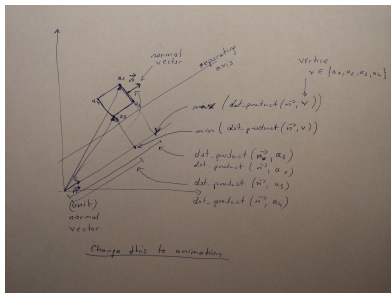 normal
vector
separating
axis
a₁
n⃗
a₂
vertice
v ∈ {a₁, a₂, a₃, a₄}
max (dot_product(n⃗, v))
min (dot_product(n⃗, v))
dot_product (n⃗, a₁)
dot_product (n⃗, a₂)
dot_product (n⃗, a₃)
dot_product (n⃗, a₄)
n⃗
(Unit)
normal
vector
Change this to animation